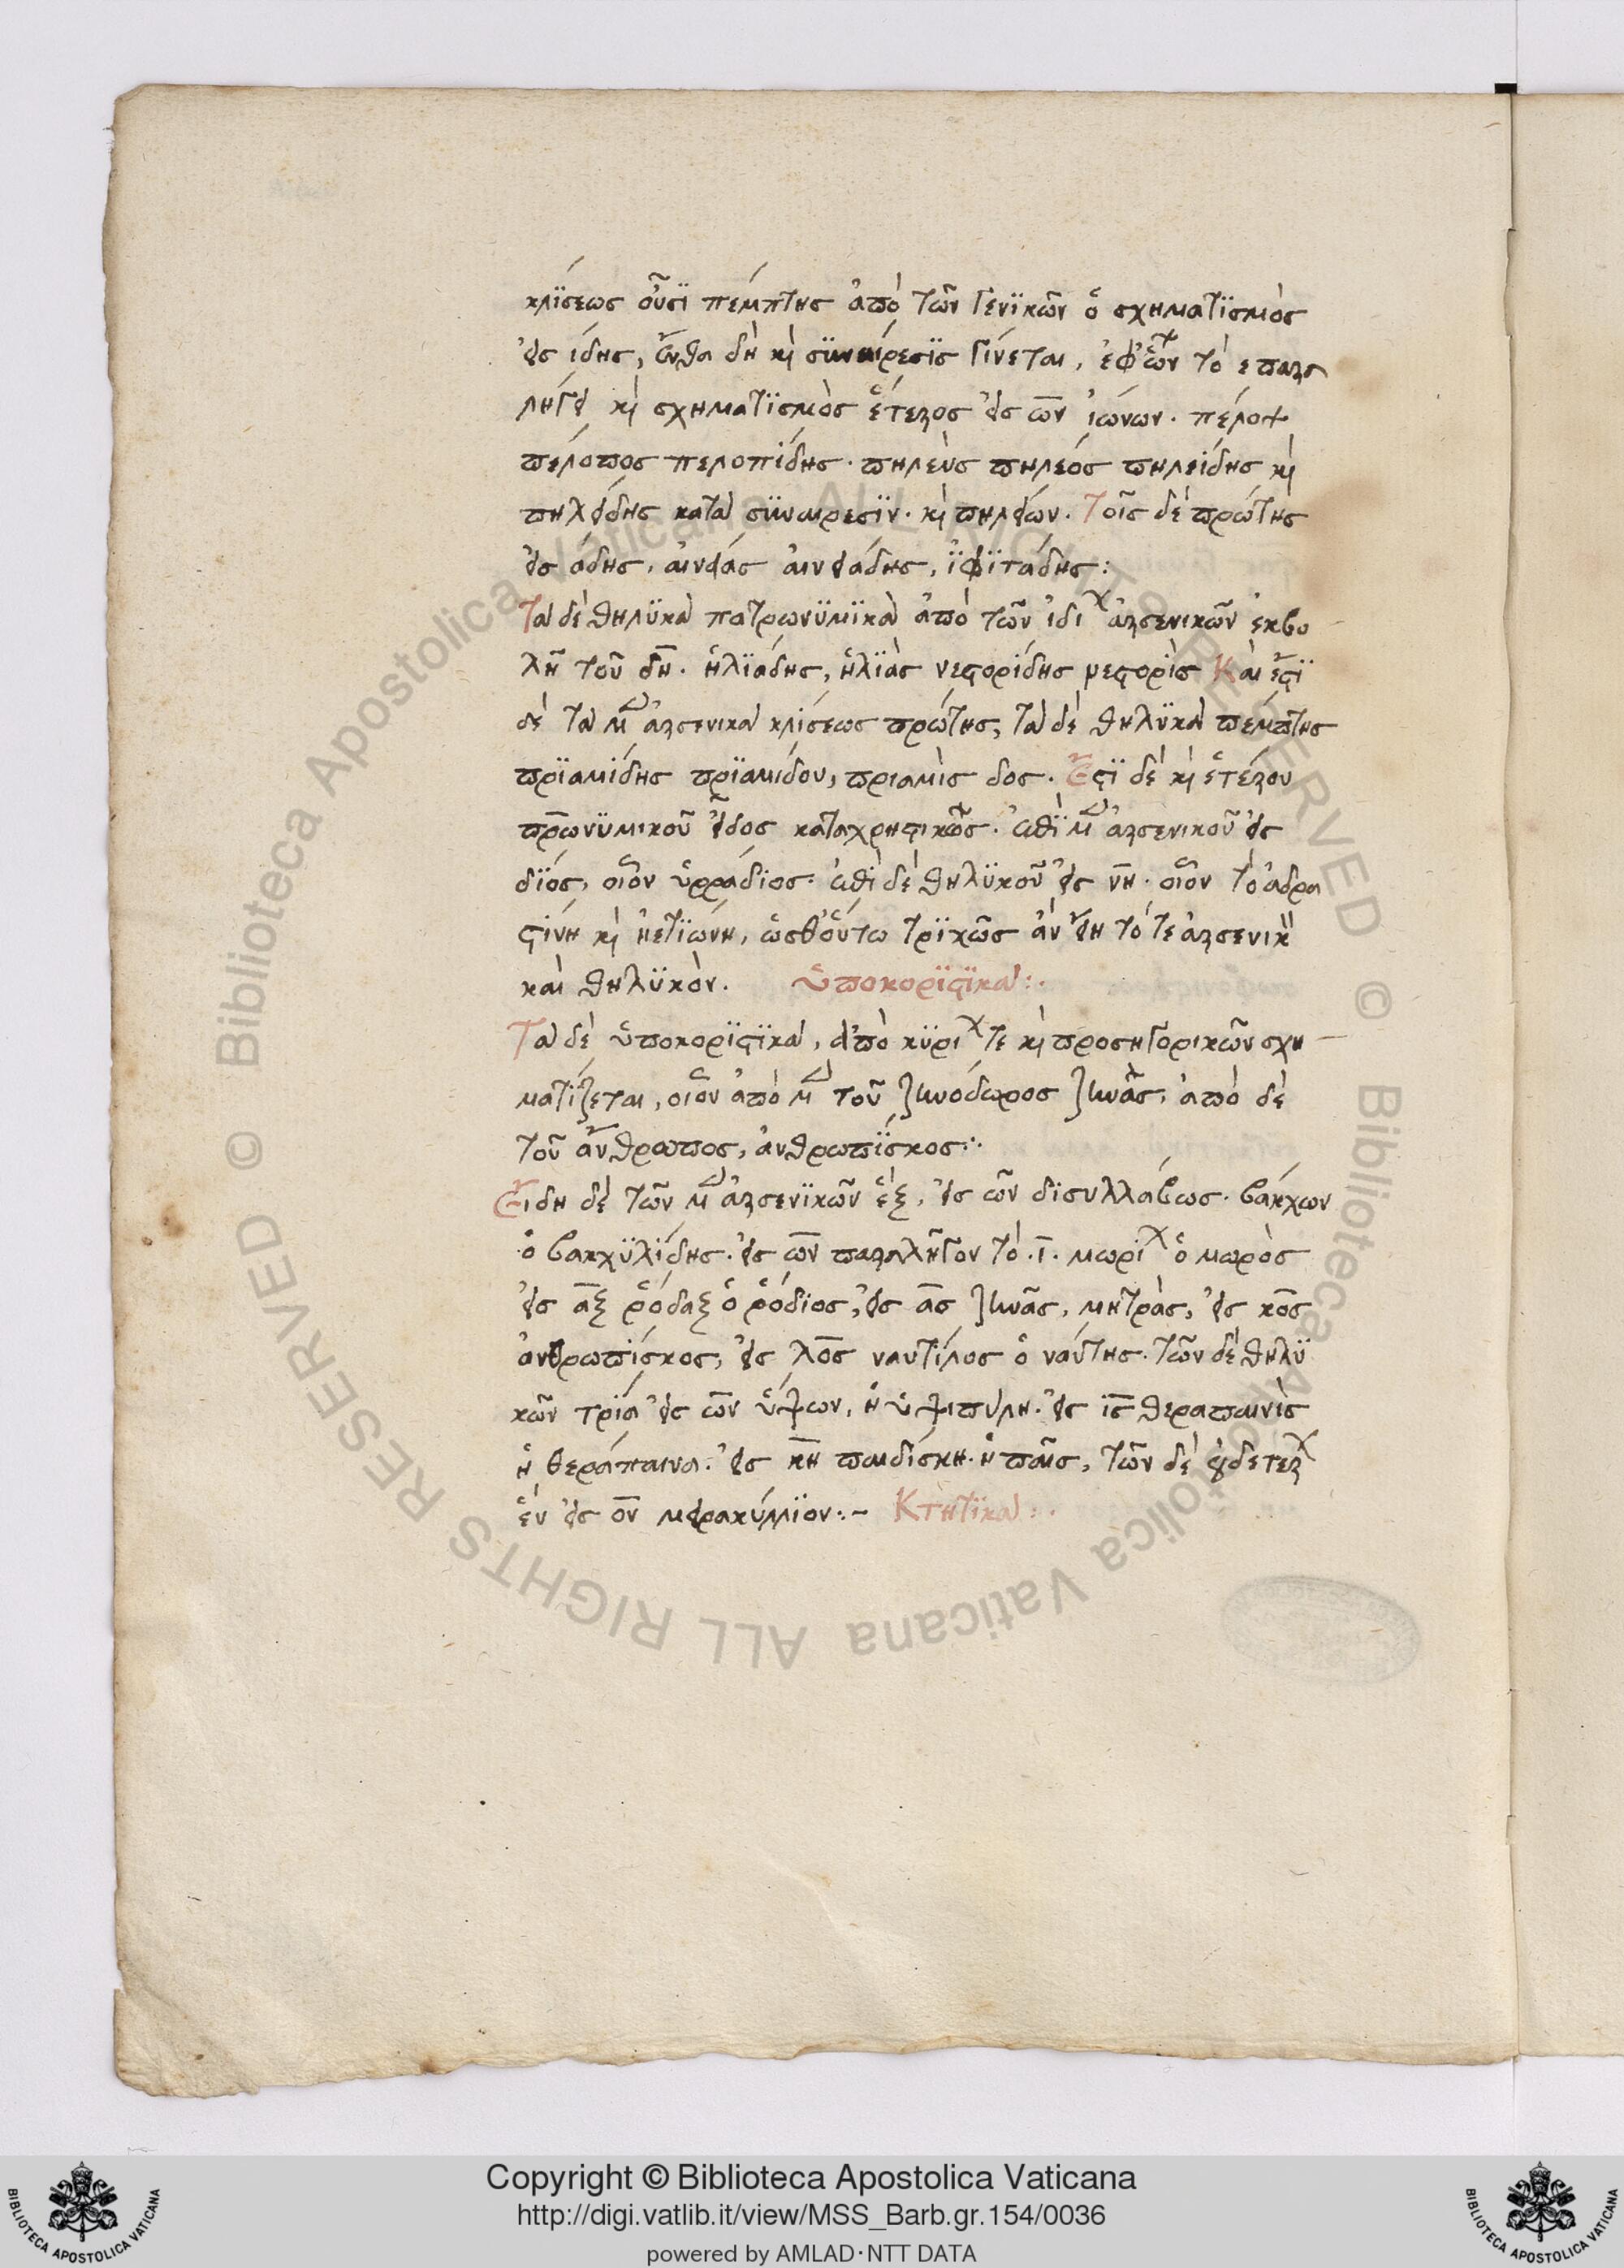 κλίσεως οὖσι πέμπτης ἀπὸ τῶν γενικῶν ὁ σχηματισμὸς
εἰς ίδης, ἔνθα δὴ καὶ συναίρεσις γίνεται, ἐφ' ὧν τὸ ε παρα
λήγει καὶ σχηματισμὸς ἕτερος εἰς ων ἰώνων. πέλοψ
πέλοπος πελοπίδης. πηλεὺς πηλέος πηλείδης καὶ
πηλείδης κατὰ συναίρεσιν. καὶ πηλείων. Τοῖς δὲ πρώτης
εἰς άδης, αἰνείας αἰνειάδης, ἰφιτάδης:
Τὰ δὲ θηλυκὰ πατρωνυμικὰ ἀπὸ τῶν ἰδίων ἀρσενικῶν ἐκβο
λῇ τοῦ δη. ἡλιάδης, ἡλιὰς νεστορίδης νεστορὶς Καὶ ἔστι
δὲ τὰ μὲν ἀρσενικὰ κλίσεως πρώτης, τὰ δὲ θηλυκὰ πέμπτης
πριαμίδης πριαμίδου, πριαμὶς δος. Ἔστι δὲ καὶ ἑτέρου
πρωνυμικοῦ εἶδος καταχρηστικῶς. ἐπὶ μὲν ἀρσενικοῦ εἰς
διός, οἷον ὑρράδιος. ἐπὶ δὲ θηλυκοῦ εἰς νη. οἷον τὸ ἀδρα
στίνη καὶ ἠετιώνη, ὡσθ' οὕτω τριχῶς ἂν εἴη τό τε ἀρσενικὸν
καὶ θηλυκὸν. Ὑποκοριστικά:.
Τὰ δὲ ὑποκοριστικὰ, ἀπὸ κυρίων τε καὶ προσηγορικῶν σχη
ματίζεται, οἷον ἀπὸ μὲν τοῦ ζηνόδωρος ζηνᾶς, ἀπὸ δὲ
τοῦ ἄνθρωπος, ἀνθρωπίσκος:.
Εἴδη δὲ τῶν μὲν ἀρσενικῶν ἓξ, εἰς ων δισυλλάβως. βάκχων
ὁ βακχυλίδης. εἰς ων παραλῆγον τὸ .ι. μωρίων ὁ μωρὸς
εἰς αξ ῥόδαξ ὁ ῥόδιος, εἰς ας ζηνᾶς, μητρᾶς, εἰς κος
ἀνθρωπίσκος, εἰς λος ναυτίλος ὁ ναύτης. τῶν δὲ θηλυ
κῶν τρία εἰς ων ὕψων, ἡ ὑψιπύλη. εἰς ις θεραπαινὶς
ἡ θεράπαινα. εἰς κη παιδίσκη. ἡ παῖς, τῶν δὲ οὐδετέρων
ἓν εἰς ον μειρακύλλιον:.- Κτητικά:.
Copyright © Biblioteca Apostolica Vaticana
http://digi.vatlib.it/view/MSS_Barb.gr.154/0036
powered by AMLAD·NTT DATA